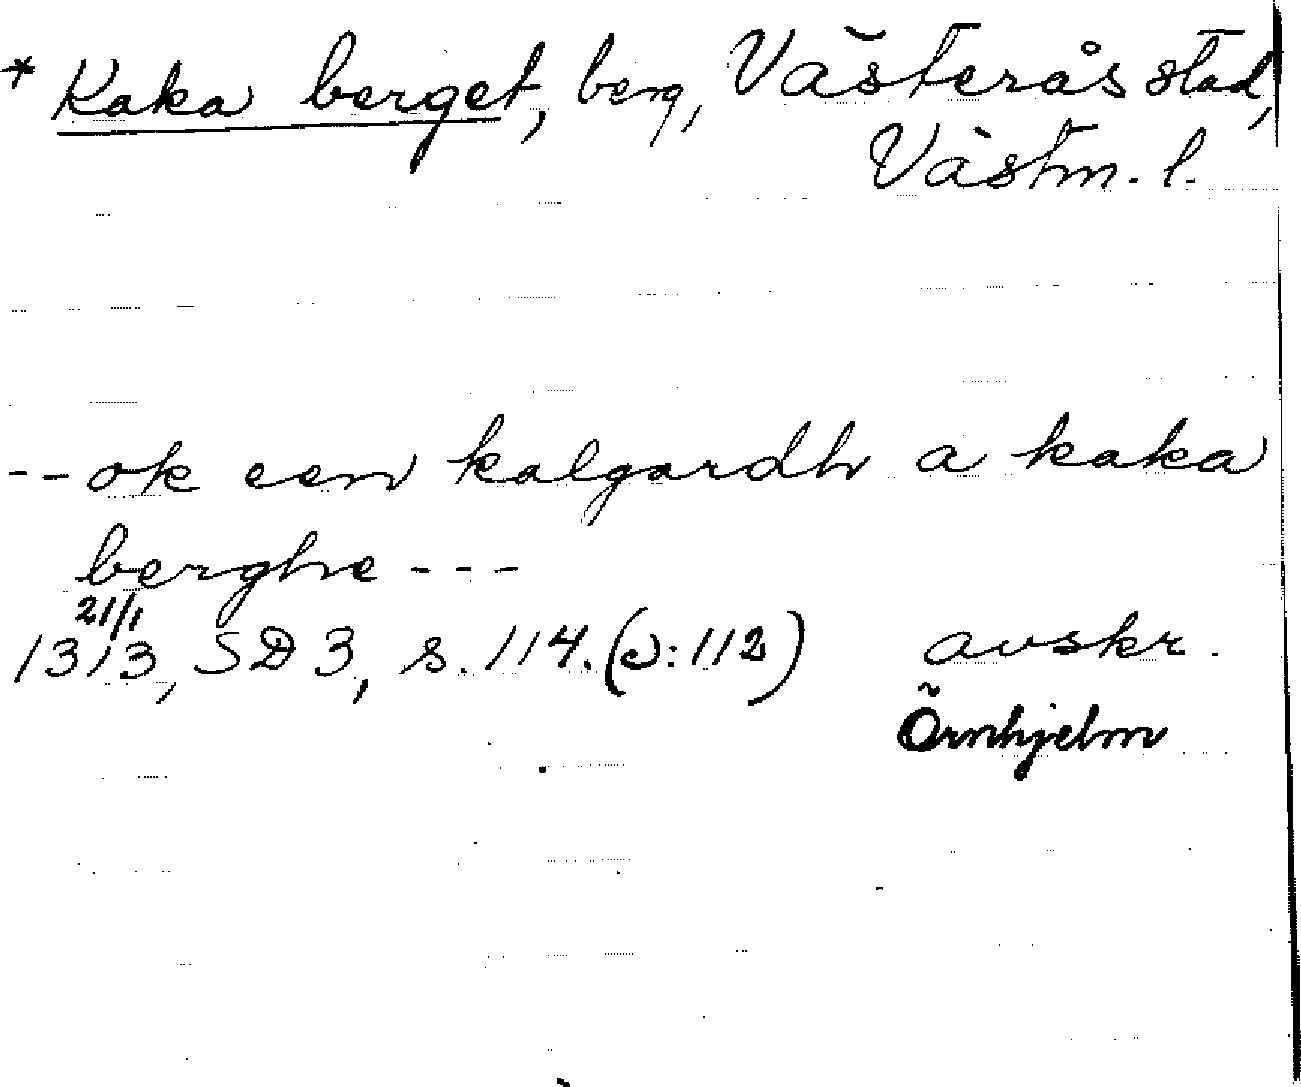 * Kaka berget, berg, Västerås stad,
Västm. l.
-- ok een kalgardh a kaka
berghe ---
21/1
1313, SD 3, s. 114. (s: 112) avskr.
Örnhjelm